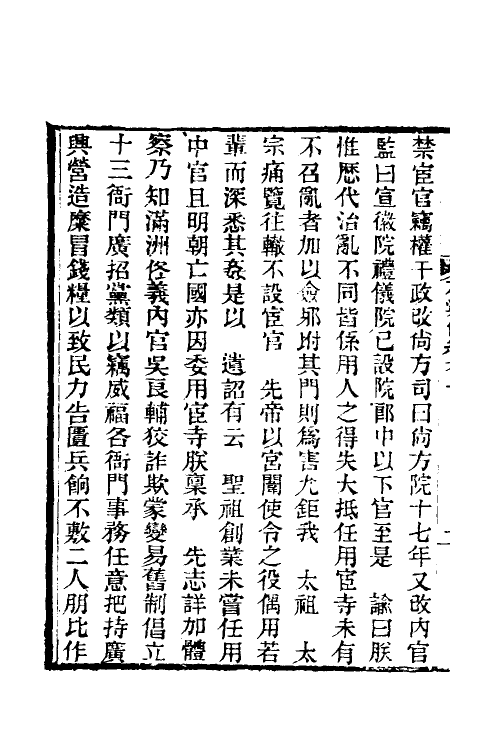 禁宦官竊權干政改尚方司曰尚方院十七年又改內官
監曰宣徽院禮儀院已設院郎中以下官至是　諭曰朕
惟歷代治亂不同皆係用人之得失大抵任用宦寺未有
不召亂者加以僉邪附其門則爲害尤鉅我　太祖　太
宗痛覽往轍不設宦官　先帝以宮闈使令之役偶用若
輩而深悉其姦是以　遺詔有云　聖祖創業未嘗任用
中官且明朝亡國亦因委用宦寺朕稟承　先志詳加體
察乃知滿洲佟義內官吳良輔狡詐欺蒙變易舊制倡立
十三衙門廣招黨類以竊威福各衙門事務任意把持廣
興營造糜冒錢糧以致民力告匱兵餉不敷二人朋比作